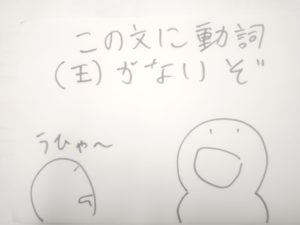 この文に動詞
(王)がないぞ
うひゃ〜